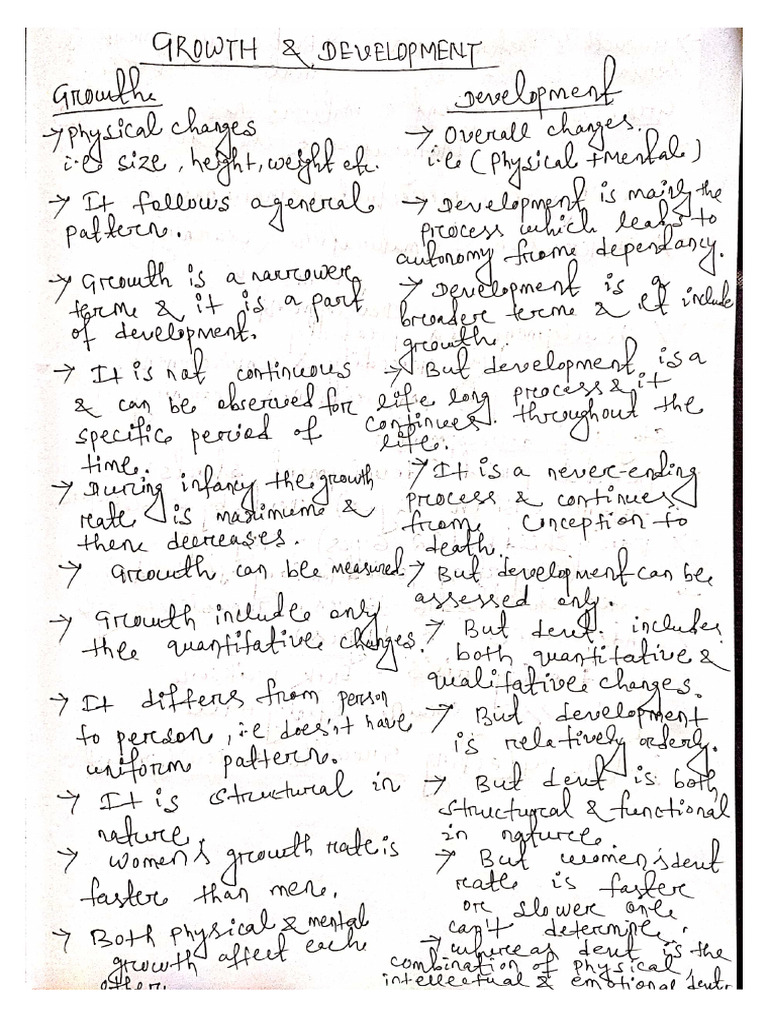 GROWTH & DEVELOPMENT
Growth
→ Physical changes
i.e size, height, weight etc.
→ It follows a general
pattern.
→ Growth is a narrower
term & it is a part
of development.
→ It is not continuous
& can be observed for
specific period of
time.
→ During infancy the growth
rate is maximum &
then decreases.
→ Growth can be measured
→ Growth include only
the quantitative changes.
→ It differs from person
to person, i.e doesn't have
uniform pattern.
→ It is structural in
nature.
→ Women's growth rate is
faster than men.
→ Both physical & mental
growth affect each
other.
Development
→ Overall changes.
i.e (Physical + Mental)
→ Development is mainly the
process which leads to
autonomy from dependancy.
→ Development is a
broader term & it include
growth.
→ But development is a
life long process & it
continues throughout the
life.
→ It is a never-ending
process & continues
from conception to
death.
→ But development can be
assessed only.
→ But devt. includes
both quantitative &
qualitative changes.
→ But development
is relatively orderly.
→ But devt is both
structural & functional
in nature.
→ But women's devt
rate is faster
or slower one
can't determine.
→ whereas devt is the
combination of physical,
intellectual & emotional devt.